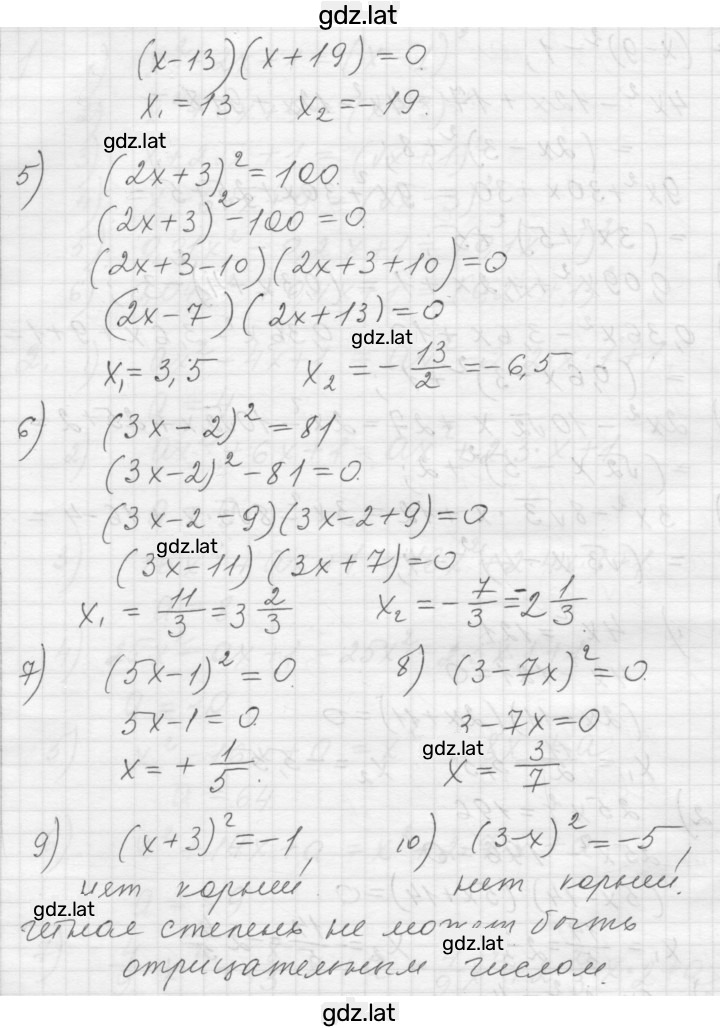 gdz.lat
(x-13)(x+19)=0.
x₁=13 x₂=-19.
gdz.lat
5) (2x+3)²=100.
(2x+3)²-100=0.
(2x+3-10)(2x+3+10)=0
(2x-7)(2x+13)=0
gdz.lat
x₁=3,5 x₂=-13/2=-6,5
6) (3x-2)²=81
(3x-2)²-81=0.
(3x-2-9)(3x-2+9)=0
gdz.lat
(3x-11)(3x+7)=0
x₁=11/3=3 2/3 x₂=-7/3=-2 1/3.
7) (5x-1)²=0. 8) (3-7x)²=0.
5x-1=0. 3-7x=0
gdz.lat
x=+1/5. x=3/7
9) (x+3)²=-1, 10) (3-x)²=-5,
нет корней. нет корней.
gdz.lat
четное степень не может быть
gdz.lat
отрицательным числом.
gdz.lat